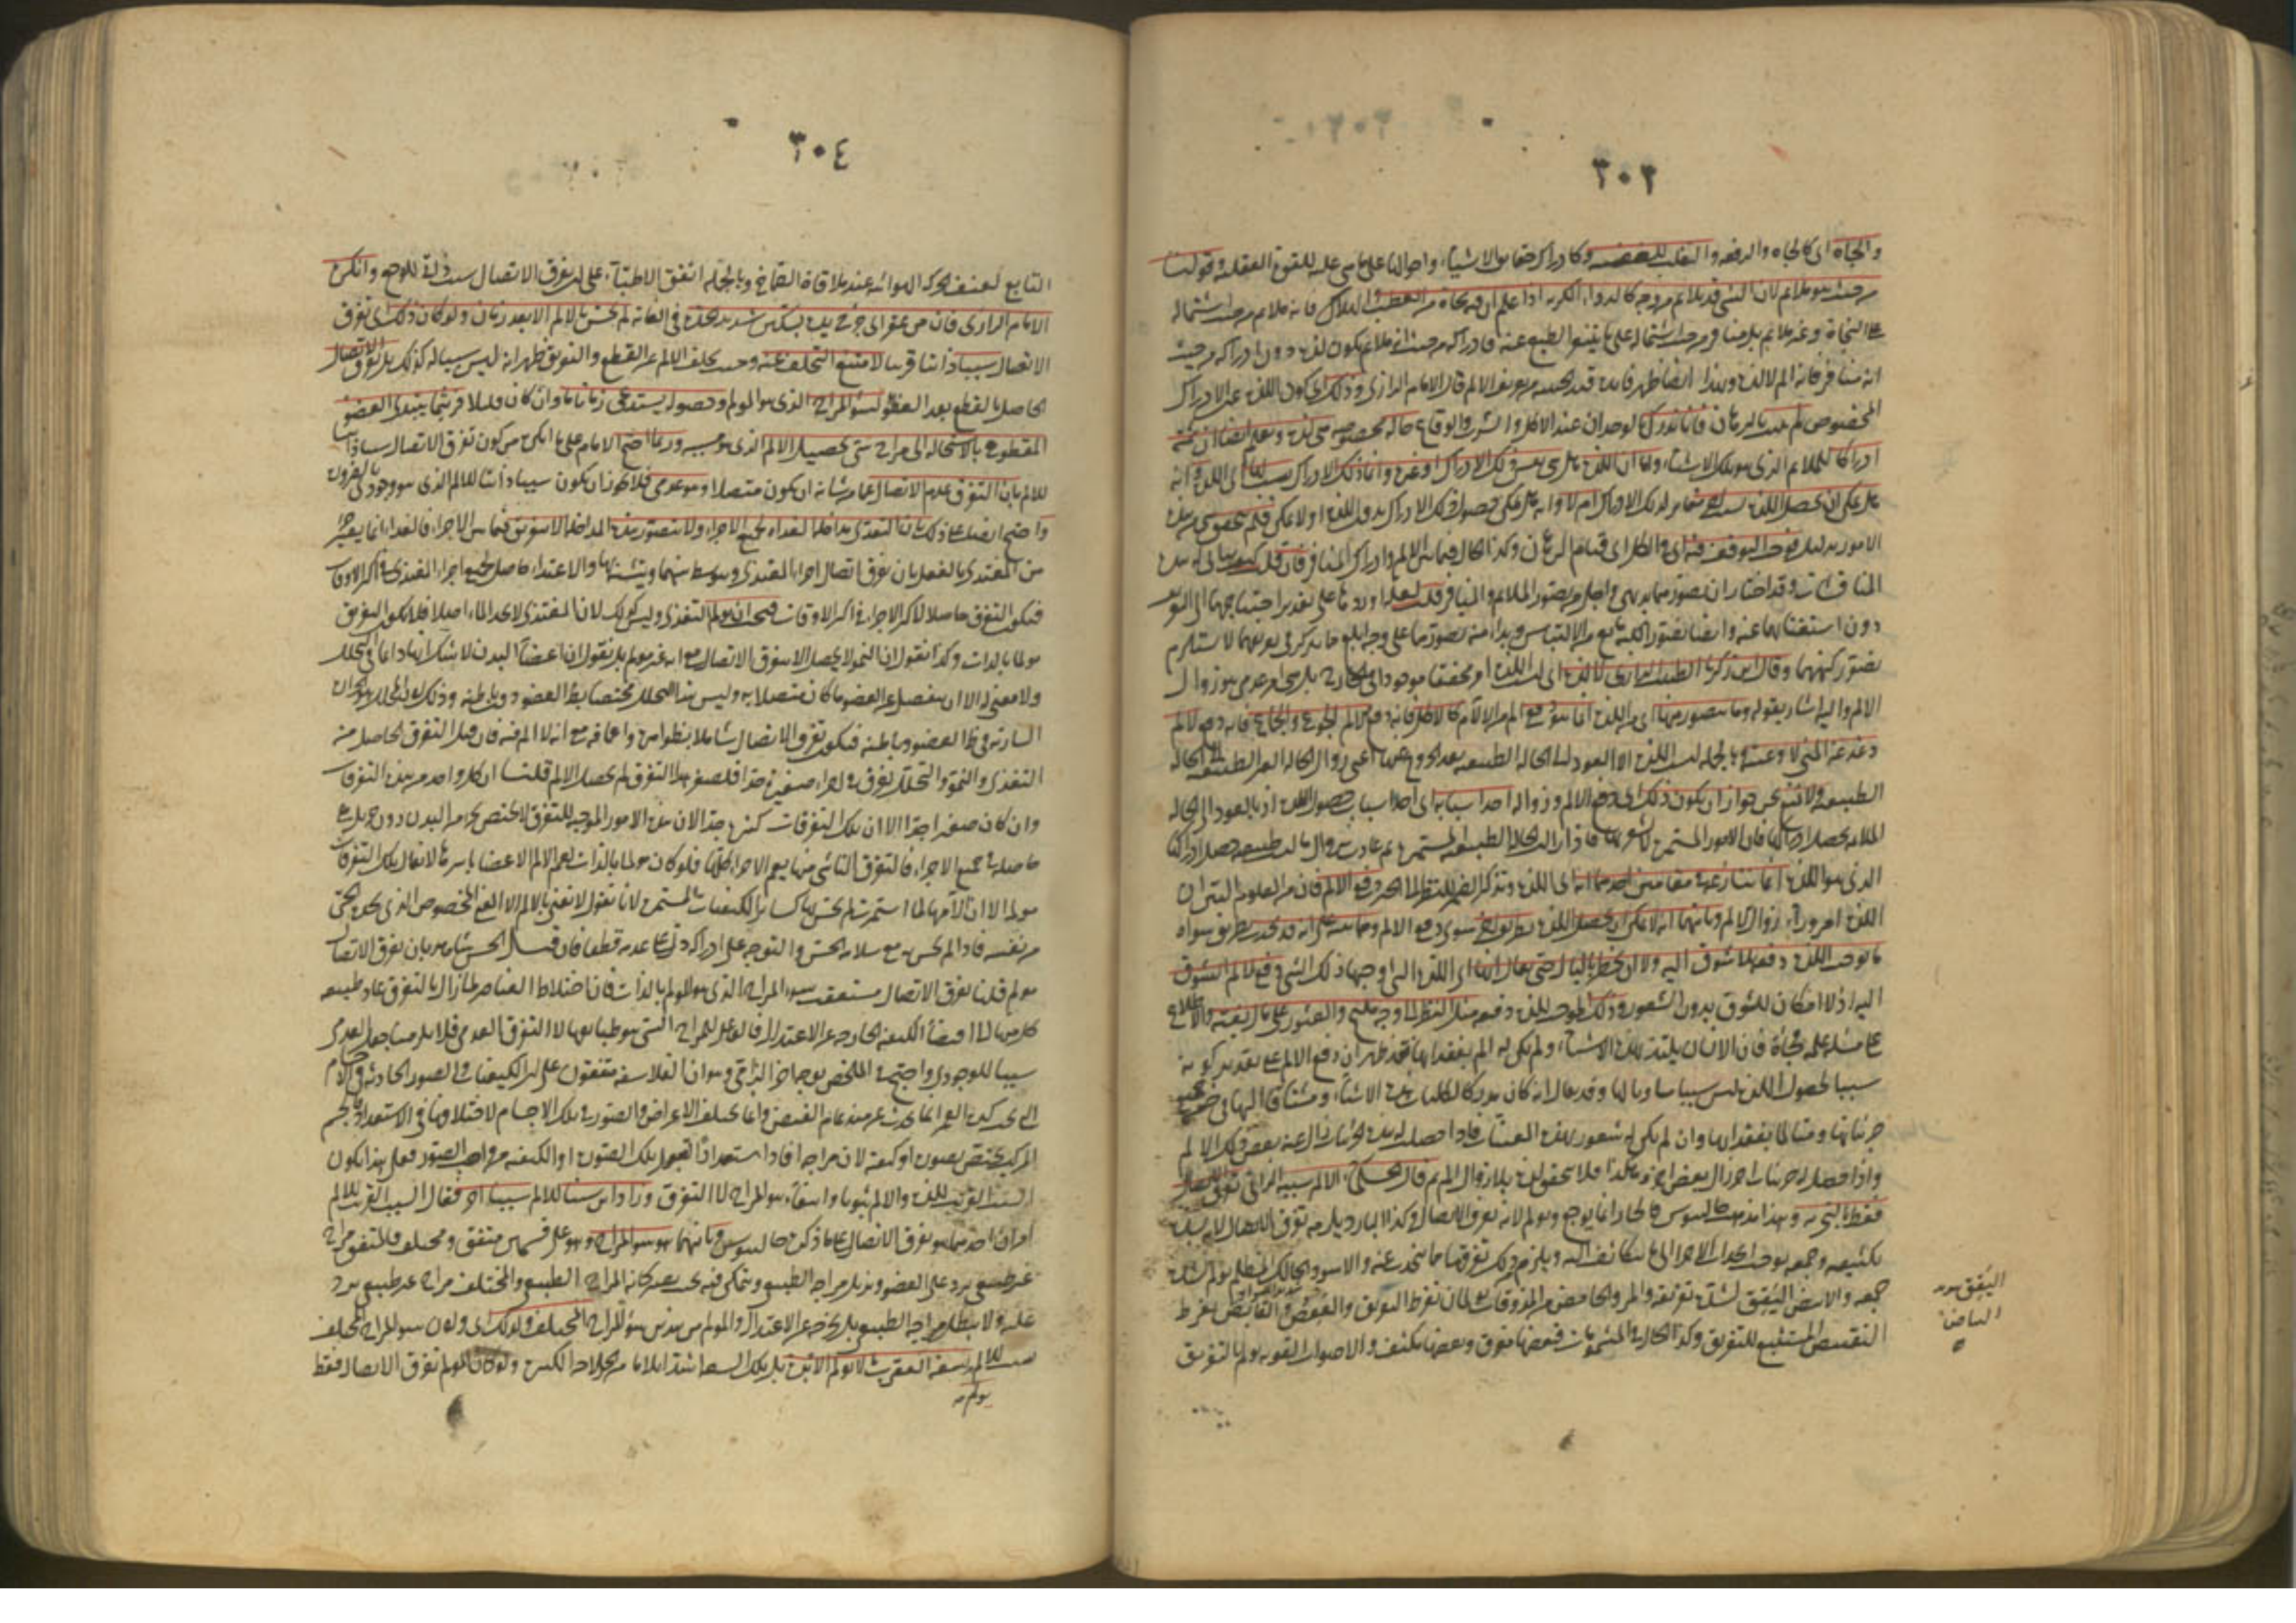 ٣٠٣
والجاه اى كالجاه والرفعه والتغلب للغضبيه وكادراك حقايق الاشياء واحوالها على ما هى عليه للقوة العقليه وقولنا
من حيث هو ملايم لان الشئ قد يلايم من وجه كالدواء الكريه اذا علم ان فيه نجاة من العطب والهلاك فانه ملايم من حيث اشتماله
على النجاة وغير ملايم بل منافر من حيث اشتماله على ما يتنفر الطبع عنه فادراكه من حيث انه ملايم يكون لذة دون ادراكه من حيث
انه منافر فانه الم لا لذة وبهذا ايضا ظهر فايدة قيد الحيثيه من تعريف الالم قال الامام الرازى وذلك اى كون اللذة عين الادراك
المخصوص لم يثبت بالبرهان فانا ندرك بالوجدان عند الاكل والشرب والوقاع حاله مخصوصه هى لذة ونعلم ايضا ان ثمة
ادراكا للملايم الذى هو تلك الاشياء واما ان اللذة هل هى نفس ذلك الادراك او غيره وانما ذلك الادراك سبب لها اى للذة وانه
هل يمكن ان يحصل اللذة بسبب اخر مغاير لذلك الادراك ام لا وانه هل يمكن حصول ذلك الادراك بدون اللذة او لا يمكن فلم يتحقق شئ من هذه
الامور بدليل فوجب التوقف فيه اى فى الكل الى قيام البرهان وكذا الحال فيما بين الالم وادراك المنافر فان قلت كيف يتأتى له هذه
المناقشات وقد اختار ان تصور ماهيتهما بديهى واجلى من تصور الملايم والمنافر قلت لعله اوردها على تقدير احتياجهما الى التعريف
دون استغنائهما عنه وايضا تصور الكنه مانع من الالتباس وبداهة تصورهما على وجه ابلغ مما يذكر فى تعريفهما لا يستلزم
تصور كنههما وقال ابن زكريا الطبيب الرازى ليس اللذة امرا محققا موجودا فى الخارج بل هى امر عدمى هو زوال
الالم واليه اشار بقوله وما يتصور منها اى من اللذة انما هو دفع الم من الالام كالاكل فانه دفع الم الجوع والجماع فانه دفع الم
دغدغة المنى لاوعيته وبالجمله ليست اللذة الا العود الى الحاله الطبيعيه بعد الخروج عنها اعنى زوال الحاله الغير الطبيعيه الى الحاله
الطبيعيه ولا نمنع نحن جواز ان يكون ذلك اى دفع الالم وزواله احد اسبابه اى احد اسباب حصول اللذة اذ بالعود الى الحاله
الملايمه يحصل ادراكها فان الامور المستمره لا يشعر بها فاذا زالت الحاله الطبيعيه المستمره ثم عادت بزوال ما ليست طبيعيه حصل ادراكها
الذى هو اللذة انما ننازعه فى مقامين احدهما انه اى اللذة وتذكير الضمير للنظر الى الخبر دفع الالم فان من المعلوم البين ان
اللذة امر وراء زوال الالم وثانيهما انه لا يمكن ان يحصل اللذة بطريق اخر سوى دفع الالم ومما ينبه على انه قد تحدث بطريق سواه
ما يوجب اللذة دفعه بلا شوق اليه ولا ان يخطر بالبال حتى يقال انها اى اللذة التى اوجبها ذلك الشئ دفع لالم الشوق
اليه اذ لا امكان للشوق بدون الشعور وذلك الموجب للذة دفعه مثل النظر الى وجه مليح والعثور على مال بغته والاطلاع
على مسئله علميه فجأة فان الانسان يلتذ بهذه الاشياء ولم يكن له الم بفقدانها فقد ظهر ان دفع الالم على تقدير كونه
سببا لحصول اللذة ليس سببا مساويا لها وقد يقال انه كان مدركا لكليات هذه الاشياء ومشتاقا اليها فى ضمن
جزئياتها ومتالما بفقدانها وان لم يكن له شعور بهذه المعينات فاذا حصل له هذه الجزئيات زال عنه بعض ذلك الالم
واذا حصل له جزئيات اخر زال بعض اخر وهكذا فلا يتحقق لذة بلا زوال الم ثم قال الحكماء الالم سببه الذاتى تفرق الاتصال
فقط بالتجربه وبهذا مذهب جالينوس فالحار انما يوجع ويؤلم لانه يفرق الاتصال وكذا البارد يلزمه تفرق الاتصال لانه لشدة
تكثيفه وجمعه يوجب انجذاب الاجزاء الى ما يتكاثف اليه ويلزم ذلك تفرقها مما تنجذب عنه والاسود الحالك المظلم يولم لشدة
جمعه والابيض اليقق لشدة تفريقه والمر والحامض من المذوقات يولمان لفرط التفريق والعفص والقابض لفرط
التقبيض المستتبع للتفريق وكذا الحال فى المشمومات فبعضها مفرق وبعضها مكثف والاصوات القويه تولم بالتفريق
اليقق
البياض
٣٠٤
التابع لعنف الحركه الهوائيه عند ملاقاة الصماخ وبالجمله اتفق الاطباء على ان تفرق الاتصال سبب ذاتى للوجع وانكره
الامام الرازى فان من عقر اى جرح يده بسكين شديد الحده فى الغايه لم يحس بالالم الا بعد زمان ولو كان ذلك اى تفرق
الاتصال سببا ذاتيا قريبا لامتنع التخلف عنه وحيث تخلف الالم عن القطع والتفريق ظهر انه ليس سببا له كذلك بل تفرق الاتصال
الحاصل بالقطع يعد العضو لسوء المزاج الذى هو المولم وحصوله يستدعى زمانا ما وان كان قليلا فريثما يبتدى العضو
المقطوع بالاستحاله الى مزاج سئ يحصل الالم الذى هو مسببه وربما احتج الامام على ما انكره من كون تفرق الاتصال سببا ذاتيا
للالم بان التفرق عدم الاتصال عما من شانه ان يكون متصلا وهو عدمى فلا يجوز ان يكون سببا ذاتيا للالم الذى هو وجودى بالضروره
واحتج ايضا على ذلك بان التغذى مداخلة الغذاء لجميع الاجزاء ولا يتصور هذه المداخله الا بتفريق فيما بين الاجزاء فالغذاء انما يصير جزءا
من المغتذى بالفعل بان يفرق اتصال اجزاء المغتذى ويتوسط بينهما ويتشبه بها والاغتذاء حاصل لجميع اجزاء المغتذى فى اكثر الاوقات
فيكون التفرق حاصلا لاكثر الاجزاء فى اكثر الاوقات فيجب ان يولم التغذى وليس كذلك لان المغتذى لا يجد الما اصلا فلا يكون التفريق
مولما بالذات وكذا نقول ان النمو لا يحصل الا بتفرق الاتصال مع انه غير مولم بل نقول ان اعضاء البدن لا شك انها دائما فى التحلل
ولا معنى له الا ان ينفصل عن العضو ما كان متصلا به وليس هذا التحلل مختصا بظاهر العضو دون باطنه وذلك لان المحلل هو الحراره
الساريه فى ظاهر العضو وباطنه فيكون تفرق الاتصال شاملا لظواهره واعماقه مع انه لا الم فيه فان قيل التفرق الحاصل من
التغذى والنمو والتحلل تفرق فى اجزاء صغيره جدا فلصغر هذا التفرق لم يحصل الالم قلنا ان كل واحد من هذه التفرقات
وان كان صغيرا جدا الا ان تلك التفرقات كثيره جدا لان هذه الامور الموجبه للتفرق لا يختص بجزء من البدن دون جزء بل هى
حاصله فى جميع الاجزاء فالتفرق الناشى منها يعم الاجزاء كلها فلو كان مولما بالذات لعم الالم الاعضاء باسرها لا يقال تلك التفرقات
مولمه الا ان آلامها لما استمرت لم يحس بها كسائر الكيفيات المستمره لانا نقول لا نعنى بالالم الا المعنى المخصوص الذى يجده الحى
من نفسه فاذا لم يحس به مع سلامة الحس والتوجه على ادراكه دل على عدمه قطعا فان قيل الحس شاهد بان تفرق الاتصال
مولم قلنا تفرق الاتصال يستعقب سوء المزاج الذى هو المولم بالذات فان اختلاط العناصر لما زال بالتفرق عاد طبيعة
كل منها الى اقتضاء الكيفيه الخارجه عن الاعتدال فالفاعل للمزاج السئ هو طبايعها لا التفرق العدمى فلا يلزمنا جعل العدمى
سببا للوجودى واحتج فى الملخص بوجه اخر الزامى وهو ان الفلاسفه متفقون على ان الكيفيات والصور الحادثه فى الاجسام
التى تحت كرة القمر انما تحدث عن مبدا عام الفيض وانما تختلف الاعراض والصور فى تلك الاجسام لاختلافها فى الاستعداد فالجسم
المركب يختص بصوره او كيفيه لان مزاجه افاده استعدادا لقبول تلك الصوره او الكيفيه من واهب الصور فعلى هذا يكون
السبب القريب للذة والالم ثبوتا وانتفاء هو المزاج لا التفرق وزاد ابن سينا للالم سببا اخر فقال السبب القريب للالم
امران احدهما هو تفرق الاتصال على ما ذكره جالينوس وثانيهما هو سوء المزاج وهو على قسمين متفق ومختلف فالمتفق مزاج
غير طبيعى يرد على العضو ويزيل مزاجه الطبيعى ويتمكن فيه بحيث يصير كانه المزاج الطبيعى والمختلف مزاج غير طبيعى يرد
عليه ولا يبطل مزاجه الطبيعى بل يخرجه عن الاعتدال والمولم من هذين سوء المزاج المختلف ولذلك اى ولان سوء المزاج المختلف
سبب للالم لسعة العقرب مثلا تولم الابره بل تلك اللسعه اشد ايلاما من الجراحه الكبيره ولو كان المولم تفرق الاتصال فقط
يولم